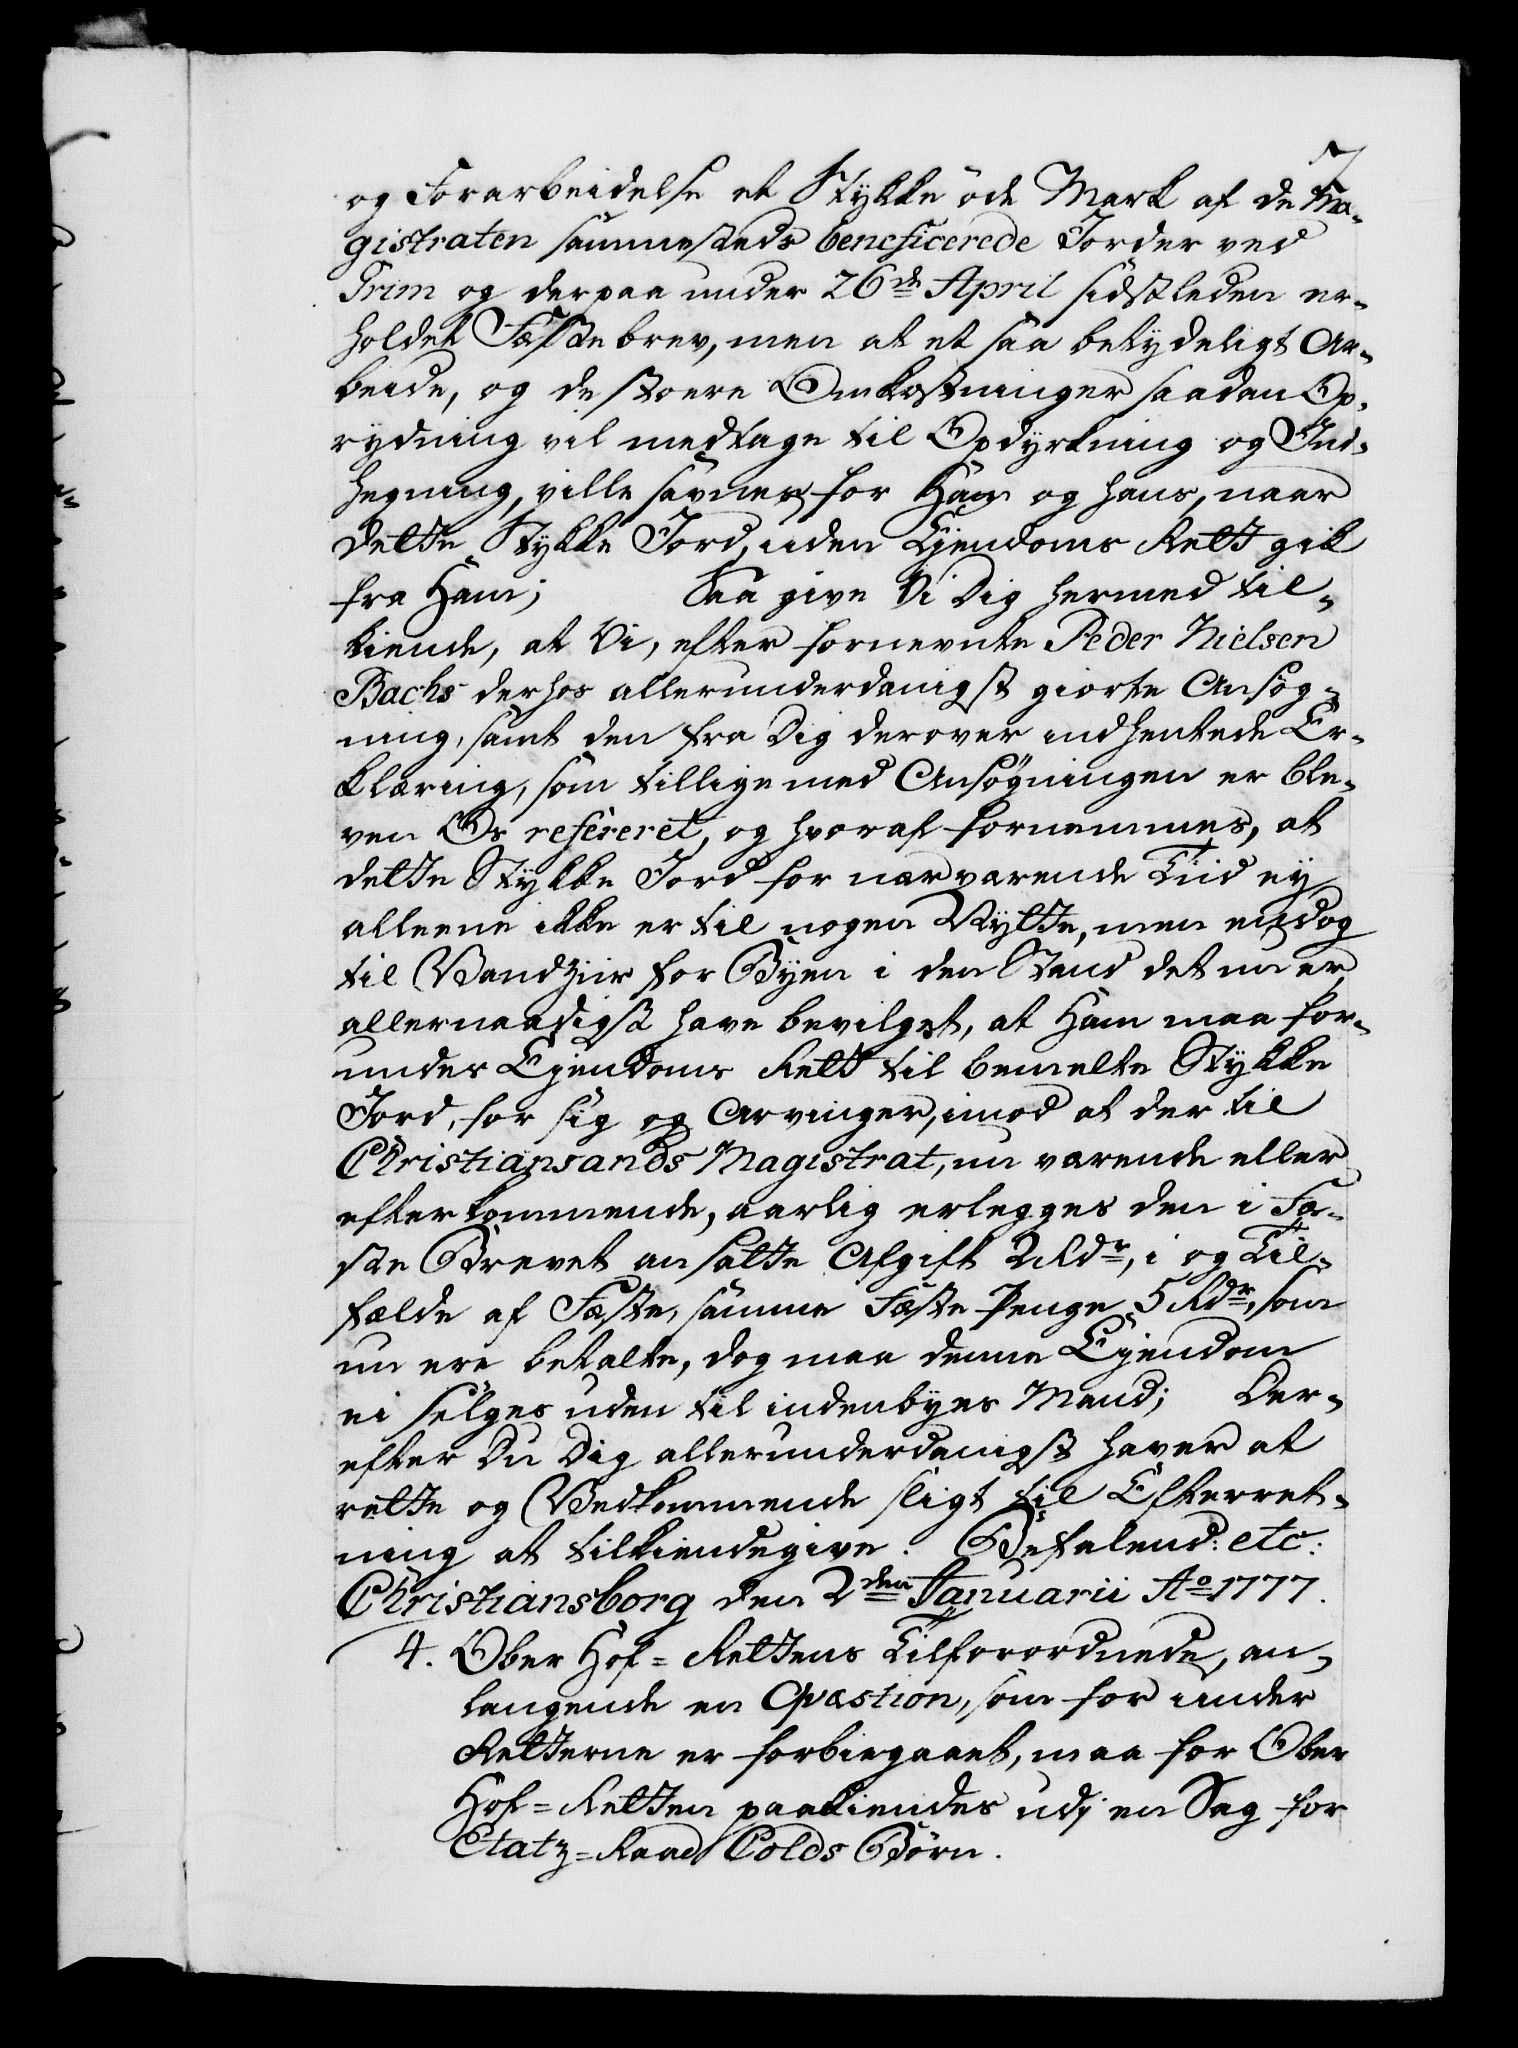 7
og Forarbeidelse et Stykke öde Mark af de Ma-
gistraten sammesteds beneficerede Jorder ved
Grim og derpaa under 26de April sidstleden er-
holdet Fæste brev, men at et saa betydeligt Ar-
beide, og de stoere Omkostninger saadan Op-
rydning vil medtage til Opdyrkning og Ind-
hegning, ville savnes for Ham og hans, naar
dette Stykke Jord, uden Ejendoms Rett gik
fra Ham; Saa give Vi Dig hermed til-
kiende, at Vi, efter fornevnte Peder Nielsen
Bachs derhos allerunderdanigst giorte Ansög-
ning, samt den fra Dig derover indhentede Er-
klæring, som tillige med Ansögningen er ble-
ven Os refereret, og hvoraf fornemmes, at
dette Stykke Jord for nærværende Tiid ey
alleene ikke er til nogen Nytte, men endog
til Vandziir for Byen i den Stand det nu er,
allernaadigst have bevilget, at Ham maa for-
undes Ejendoms Rett til bemelte Stykke
Jord, for sig og Arvinger, imod at der til
Christiansands Magistrat, nu værende eller
efterkommende, aarlig erlegges den i Fæ-
ste Brevet ansatte Afgift 2 Rdr, i og Til-
fælde af Fæste, samme Fæste Penge 5 Rdr, som
nu ere betalte, dog maa denne Ejendom
ei selges uden til indenbyes Mand; Der-
efter Du Dig allerunderdanigst haver at
rette og Vedkommende sligt til Efterret-
ning at tilkiendegive. Befalend: etc:
Christiansborg den 2den Januarii Ao 1777.
4. Ober Hof-Rettens Tilforordnede, an-
langende en Qvæstion, som for under
Retterne er forbiegaaet, maa for Ober
Hof-Retten paakiendes udj en Sag for
Etatz-Raad Colds Börn.